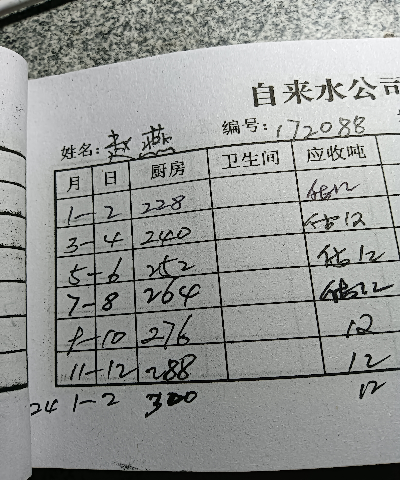 自来水公司
姓名: 赵燕 编号: 172088
月 日 厨房 卫生间 应收吨
1-2 228 估12
3-4 240 估12
5-6 252 估12
7-8 264 估12
9-10 276 12
11-12 288 12
24 1-2 300 12